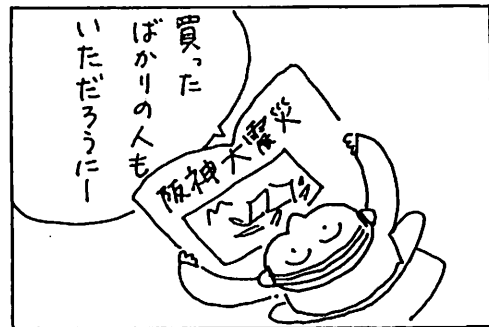 買った
ばかりの人も
いただろうにー
阪神大震災